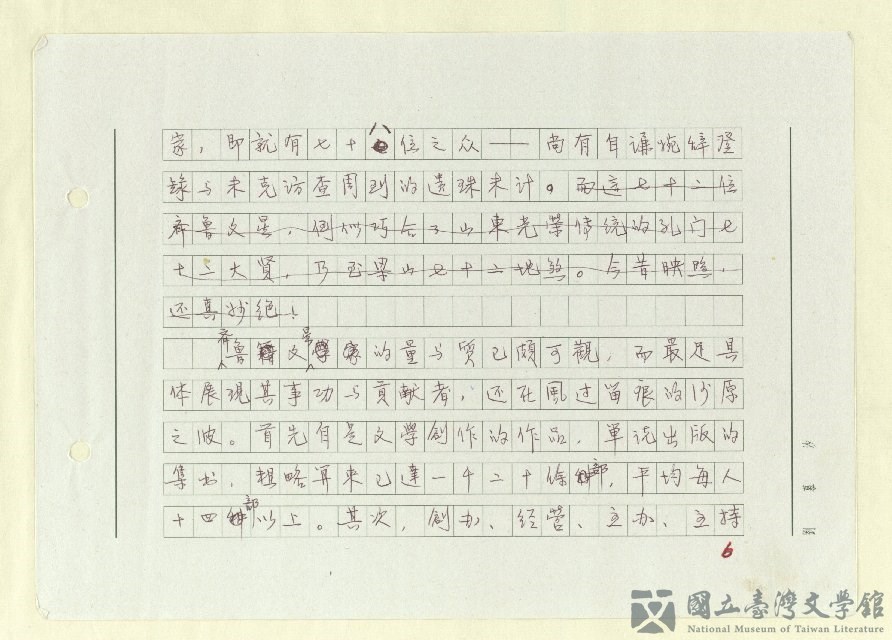 家,即就有七十八位之众——尚有自谦婉辞登
錄与未克访查周到的遗珠未计。而这七十二位
齐鲁文星,倒似巧合了山東光榮传统的孔门七
十二大賢,乃至梁山七十二地煞。今昔映照,
还真妙绝!
齐鲁文星的量与質已頗可觀,而最足具
体展现其事功与貢献者,还在風过留痕的沙原
之波。首先自是文學創作的作品,單说出版的
集书,粗略算来已達一千二十餘部,平均每人
十四部以上。其次,創办、经营、主办、主持
6
國立臺灣文學館
National Museum of Taiwan Literature